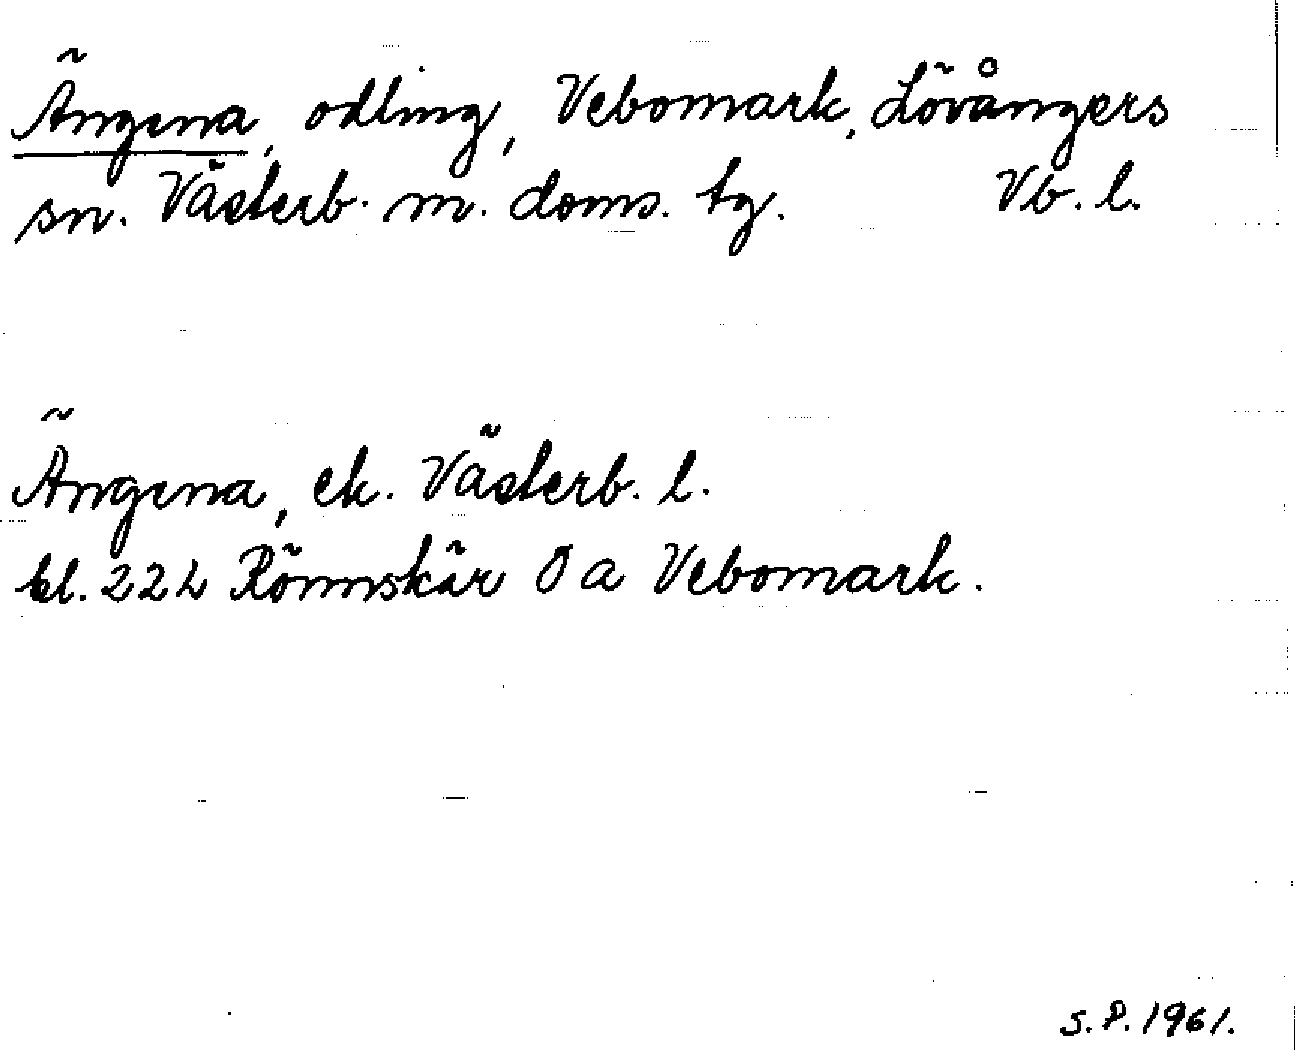 Ängena, odling, Vebomark, Lövångers
sn. Västerb. m. doms. tg. Vb. l.
Ängena, ek. Västerb. l.
bl. 22L Rönnskär Ö a Vebomark.
S.P. 1961.